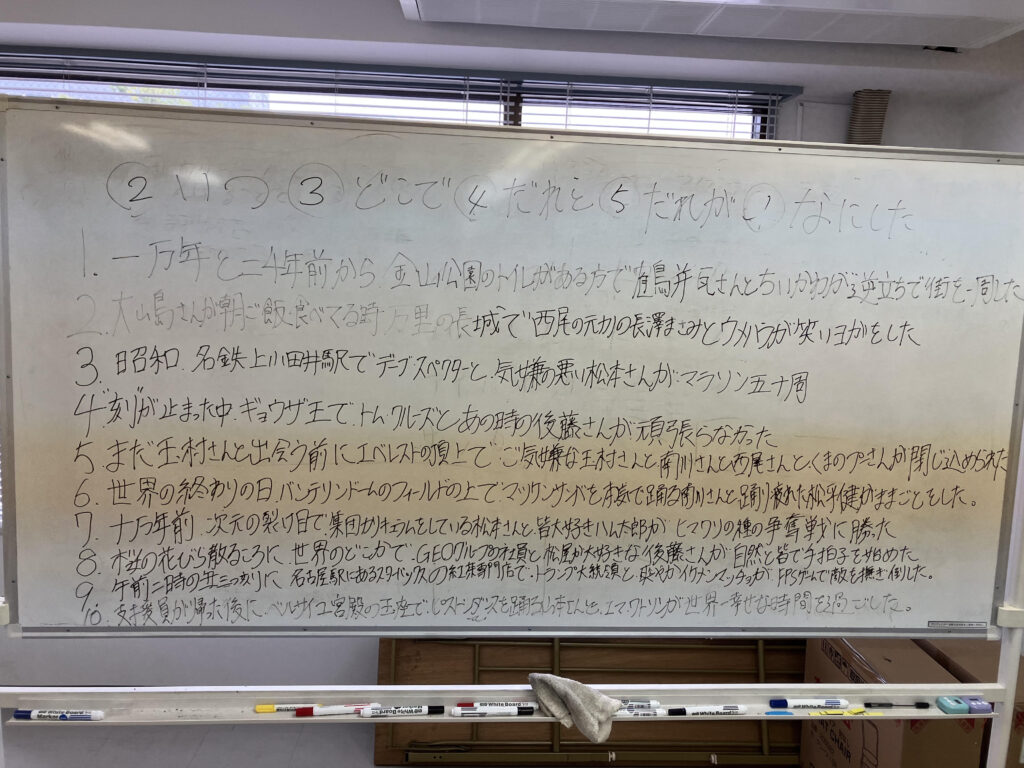 ② いつ ③ どこで ④ だれと ⑤ だれが ① なにした
1. 一万年と二4年前から 金山公園のトイレがある方で 直鳥井瓦さんとちいかわが 逆立ちで街を一周した
2. 大山島さんが朝ご飯食べてる時 万里の長城で 西尾の元カノの長澤まさみとウメハラが笑いヨガをした
3. 昭和 名鉄上小田井駅でデーブスペクターと、気嫌の悪い松本さんが マラソン五十周
4. 刻が止まった中 ギョウザ王で トムクルーズとあの時の後藤さんが 頑張らなかった
5. まだ玉村さんと出会う前に エベレストの頂上で ご気嫌な玉村さんと南川さんと西尾さんと、くまのプーさんが閉じ込められた
6. 世界の終わりの日、バンテリンドームのフィールドの上で マツケンサンバを本気で踊る南川さんと踊り疲れた松平健が ままごとをした。
7. 十万年前 次元の裂け目で 集団カリキュラムをしている松本さんと、皆大好きハム太郎が ヒマワリの種の争奪戦に勝った
8. 桜の花びら散るころに 世界のどこかで、GEOグループの社員と 松屋が大好きな後藤さんが 自然と皆で手拍子を始めた
9. 午前二時の丑三つ刻に 名古屋駅にあるスタバックスの紅茶専門店で、トランプ大統領と 爽やかイケメンマッチョが、FPSゲームで敵を薙ぎ倒した。
10. 支援員が帰った後に、ベルサイユ宮殿の玉座で ピストンダンスを踊る山本さんと エマワトソンが 世界一幸せな時間を過ごした。
White Board Marker
White Board
White Board
White Board
CHAIR